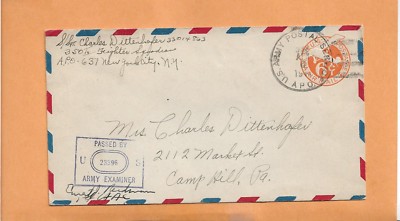 Charles Dittenhofer
350th Fighter Squadron
APO-637 New York City, N.Y.
U.S. ARMY POSTAL SERVICE
A.P.O.
6¢
Mrs Charles Dittenhofer
2112 Market St.
Camp Hill, Pa.
PASSED BY
U S
ARMY EXAMINER